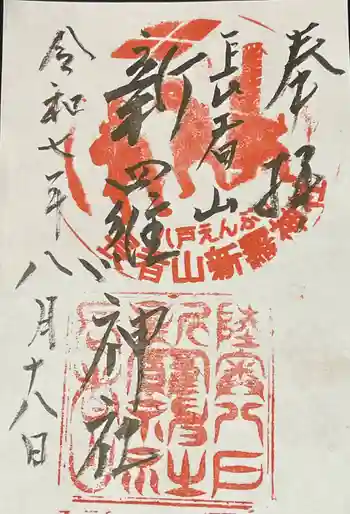 奉拝
長者山
新羅神社
令和七年八月十八日
八戸えんぶ
者山新羅神社
陸奥八戸